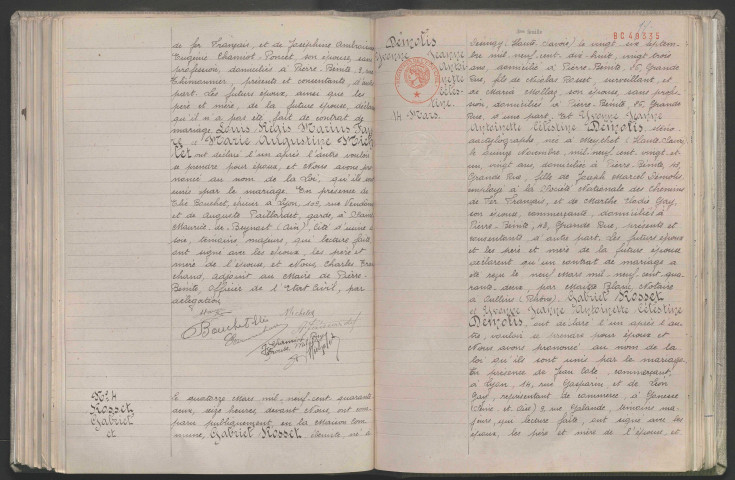 de fer Français, et de Joséphine Ambroisine
Eugénie Chamiot-Poncet, son épouse, sans
profession, domiciliés à Pierre-Bénite, 9, rue
présents et consentants d'autre
part. Les futurs époux, ainsi que les
père et mère, de la future épouse, déclarent
qu'il n'a pas été fait de contrat de
mariage. Louis Régis Marius
et Marie Augustine
ont déclaré l'un après l'autre vouloir
se prendre pour époux, et Nous avons pro-
noncé au nom de la Loi, qu'ils sont
unis par le mariage. En présence de
Bouchet, à Lyon, rue Vendôme
et de Auguste Paillardet, garde, à Saint
Maurice de Beynost (Ain), cité d'
, témoins majeurs, qui lecture faite,
ont signé avec les époux, les père et
mère de l'épouse, et Nous, Charles
chand, adjoint au Maire de Pierre-
Bénite, Officier de l'Etat Civil, par
délégation.
N° 4
Rosset
Gabriel
et
Le quatorze Mars mil neuf cent quarante
deux, seize heures, devant Nous, ont com-
paru publiquement en la Maison Com-
mune, Gabriel Rosset, né à
2me feuille
BC49335
Deinotis
Yvonne Jeanne
Antoi-
nette
Céles-
tine.
14 Mars.
(Haute Savoie) le vingt six septem-
bre mil neuf cent dix huit, vingt trois
ans, domicilié à Pierre-Bénite, 15, Grande
Rue, fils de Nicolas Rosset, surveillant, et
de Maria Mollaz, son épouse, sans profes-
sion, domiciliés à Pierre-Bénite, 15, Grande
Rue, d'une part. Et Yvonne Jeanne
Antoinette Célestine Deinotis, sténo-
dactylographe, née à Meythet (Haute-Savoie)
le quinze décembre mil neuf cent vingt et
un, vingt ans, domiciliée à Pierre-Bénite, 48,
Grande Rue, fille de Joseph Marcel Deinotis,
employé à la Société Nationale des Chemins
de Fer Français, et de Marthe Gay,
son épouse, commerçante, domiciliés à
Pierre-Bénite, 48, Grande Rue, présents et
consentants d'autre part. Les futurs époux
et les père et mère de la future épouse
déclarent qu'un contrat de mariage a
été reçu le neuf Mars mil neuf cent qua-
rante deux, par Maître Blaise, Notaire
à Oullins (Rhône). Gabriel Rosset
et Yvonne Jeanne Antoinette Célestine
Deinotis, ont déclaré l'un après l'au-
tre, vouloir se prendre pour époux et
Nous avons prononcé au nom de la
loi qu'ils sont unis par le mariage.
En présence de Jean commerçant,
à Lyon, 14, rue Gasparin et de Léon
Gay, représentant de commerce, à Gonesse
(Seine et Oise) 9, rue Galande, témoins ma-
jeurs, qui lecture faite, ont signé avec les
époux, les père et mère de l'épouse, et